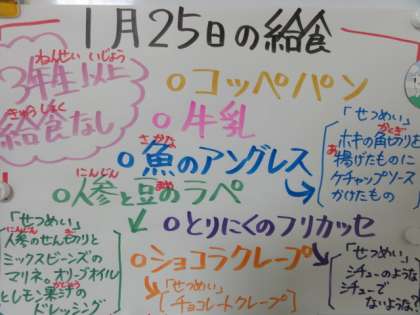 1月25日の給食
ねんせい いじょう
3年生以上
きゅうしょく
給食なし
○コッペパン
○牛乳
さかな
○魚のアングレス
「せつめい」
かくぎ
ホキの角切りを
あ
揚げたものに
ケチャップソース
かけたもの
にんじん まめ
○人参と豆のラペ
「せつめい」
にんじん
人参のせん切りと
ミックスビーンズの
マリネ。オリーブオイル
とレモン果汁の
ドレッシング
○とりにくのフリカッセ
「せつめい」
シチューのような
シチューで
ないような?
○ショコラクレープ
「せつめい」
チョコレートクレープ